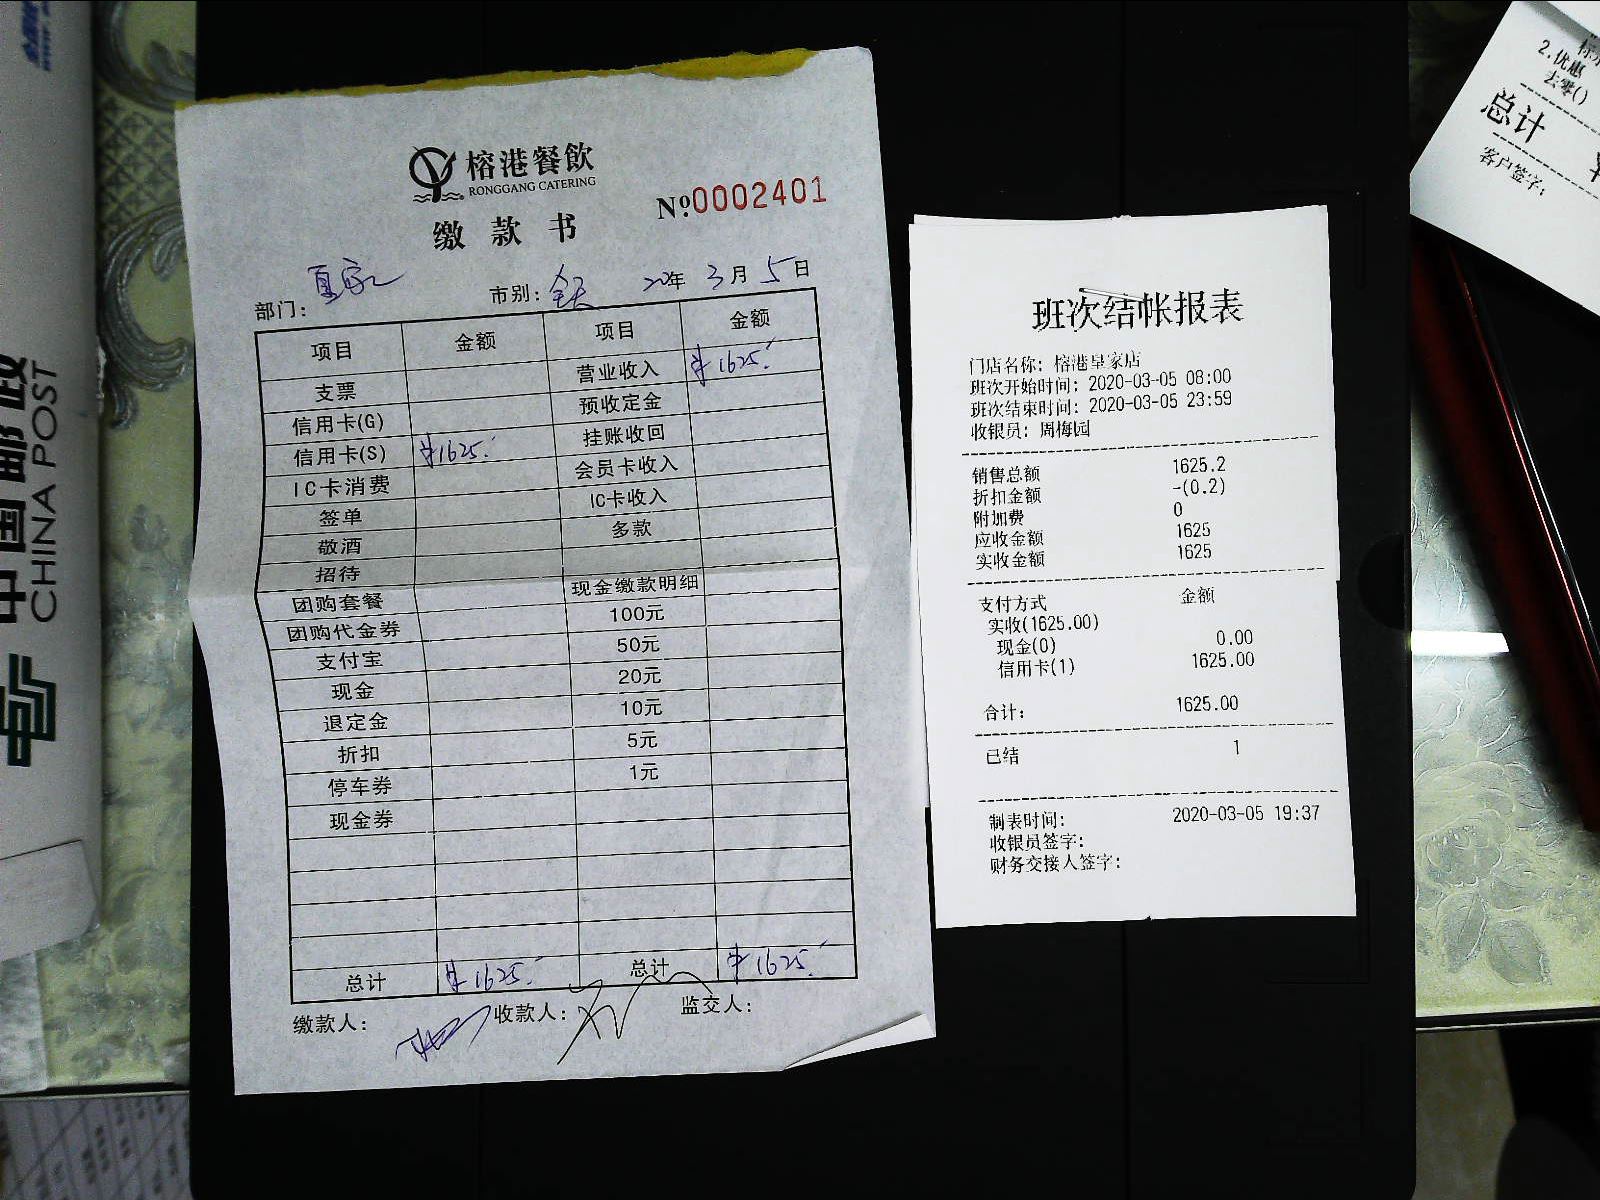 榕港餐飲
RONGGANG CATERING
№0002401
缴款书
部门：皇家 市别：全天 20年3月5日
项目 金额 项目 金额
支票 营业收入 ¥1625.
信用卡(G) 预收定金
信用卡(S) ¥1625. 挂账收回
IC卡消费 会员卡收入
签单 IC卡收入
敬酒 多款
招待
团购套餐 现金缴款明细
团购代金券 100元
支付宝 50元
现金 20元
退定金 10元
折扣 5元
停车券 1元
现金券
总计 ¥1625. 总计 ¥1625.
缴款人： 收款人： 监交人：
班次结帐报表
门店名称：榕港皇家店
班次开始时间：2020-03-05 08:00
班次结束时间：2020-03-05 23:59
收银员：周梅园
销售总额 1625.2
折扣金额 -(0.2)
附加费 0
应收金额 1625
实收金额 1625
支付方式 金额
实收(1625.00)
现金(0) 0.00
信用卡(1) 1625.00
合计： 1625.00
已结 1
制表时间： 2020-03-05 19:37
收银员签字：
财务交接人签字：
2.优惠
去零()
总计
客户签字：
中国邮政
CHINA POST